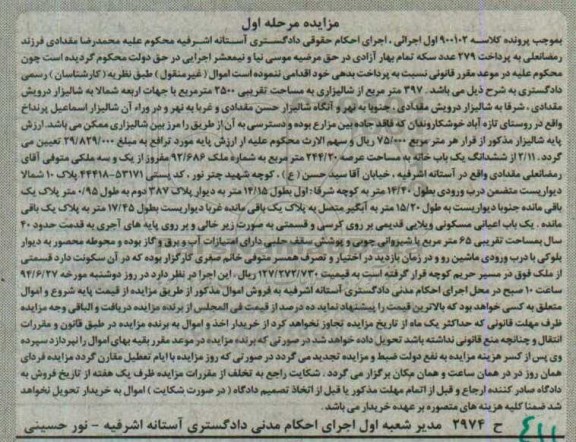 مزایده مرحله اول
بموجب پرونده کلاسه ۹۰۰۱۰۲ اول اجرائی ، اجرای احکام حقوقی دادگستری آستانه اشرفیه محکوم علیه محمدرضا مقدادی فرزند
رمضانعلی به پرداخت ۲۷۹ عدد سکه تمام بهار آزادی در حق مرضیه موسی نیا و نیمعشر اجرایی در حق دولت محکوم گردیده است چون
محکوم علیه در موعد مقرر قانونی نسبت به پرداخت بدهی خود اقدامی ننموده است اموال ( غیرمنقول ) طبق نظریه ( کارشناسان ) رسمی
دادگستری به شرح ذیل می باشد . ۳۹۷ متر مربع از شالیزاری به مساحت تقریبی ۲۵۰۰ مترمربع با جهات اربعه شمالا به شالیزار درویش
مقدادی ، شرقا به شالیزار درویش مقدادی ، جنوبا به نهر و آنگاه شالیزار حسن مقدادی و غربا به نهر و در وراء آن شالیزار اسماعیل پرنداخ
واقع در روستای تازه آباد خشکاروندان که فاقد جاده بین مزارع بوده و دسترسی به آن از طریق را مرز بین شالیزاری ممکن می باشد. ارزش
پایه شالیزار مذکور از قرار هر متر مربع ۷۵/۰۰۰ ریال و سهم الارث محکوم علیه از ارزش پایه مورد ترافع به مبلغ ۲۹/۸۲۹/۰۰۰ تعیین می
گردد. ۲/۱۱ از ششدانگ یک باب خانه به مساحت عرصه ۲۴۴/۲۰ متر مربع به شماره ملک ۹۲/۶۸۶ مفروز از یک و سه ملکی متوفی آقای
رمضانعلی مقدادی واقع در آستانه اشرفیه ، خیابان آقا سید حسن ( ع ) ، کوچه شهید چتر نور ، کد پستی ۵۳۱۷۱-۴۴۴۱۸ پلاک ۱۰ شمالا
دیواریست متضمن درب ورودی بطول ۱۴/۴۰ متر به کوچه شرقا : اول بطول ۱۴/۱۵ متر به دیوار پلاک ۳۸۷ دوم به طول ۰/۹۵ متر پلاک یک
باقی مانده جنوبا دیواریست به طول ۱۵/۲۰ متر به آبگیر متصل به پلاک یک باقی مانده غربا دیواریست بطول ۱۷/۴۵ متر به پلاک یک باقی
مانده . یک باب اعیانی مسکونی ویلایی قدیمی بر روی کرسی و قسمتی به صورت زیر خالی و بر روی پایه های آجری به قدمت حدود ۴۰
سال بمساحت تقریبی ۶۵ متر مربع با شیروانی چوبی و پوشش سقف حلبی دارای امتیازات آب و برق و گاز بوده و محوطه محصور به دیوار
بلوکی با درب ورودی ماشین رو و در زمان بازدید در اختیار و تصرف همسر متوفی خانم صغری کارگزار بوده که در آن سکونت دارد قسمتی
از ملک فوق در مسیر حریم کوچه قرار گرفته است به قیمت ۱۲۷/۲۷۲/۷۳۰ ریال ، این اجرا در نظر دارد در روز دوشنبه مورخه ۹۲/۶/۲۷
ساعت ۱۰ صبح در محل اجرای احکام مدنی دادگستری آستانه اشرفیه به فروش اموال مذکور از طریق مزایده از قیمت پایه شروع و اموال
متعلق به کسی خواهد بود که بالاترین قیمت را پیشنهاد نماید ده درصد از قیمت فی المجلس از برنده مزایده دریافت و الباقی وجه مزایده
ظرف مهلت قانونی که حداکثر یک ماه از تاریخ مزایده تجاوز نخواهد کرد از خریدار اخذ و اموال به برنده مزایده در طبق قانون و مقررات
انتقال و چنانچه منع قانونی نداشته باشد تحویل داده خواهد شد در صورتی که برنده مزایده در موعد مقرر بقیه بهای اموال را نپردازد سپرده
وی پس از کسر هزینه مزایده به نفع دولت ضبط و مزایده تجدید می گردد در صورتی که روز مزایده با ایام تعطیل مقارن گردد مزایده فردای
همان روز در در همان ساعت و همان مکان برگزار می گردد . شکایت راجع به تخلف از مقررات مزایده ظرف یک هفته از تاریخ فروش به
دادگاه صادر کننده ارجاع و قبل از اتمام مهلت مذکور یا قبل از اتخاذ تصمیم دادگاه ( در صورت شکایت ) اموال به خریدار تحویل نخواهد
شد ضمنا کلیه هزینه های متصوره بر عهده خریدار می باشد .
ح ۲۹۷۴ مدیر شعبه اول اجرای احکام مدنی دادگستری آستانه اشرفیه - نور حسینی